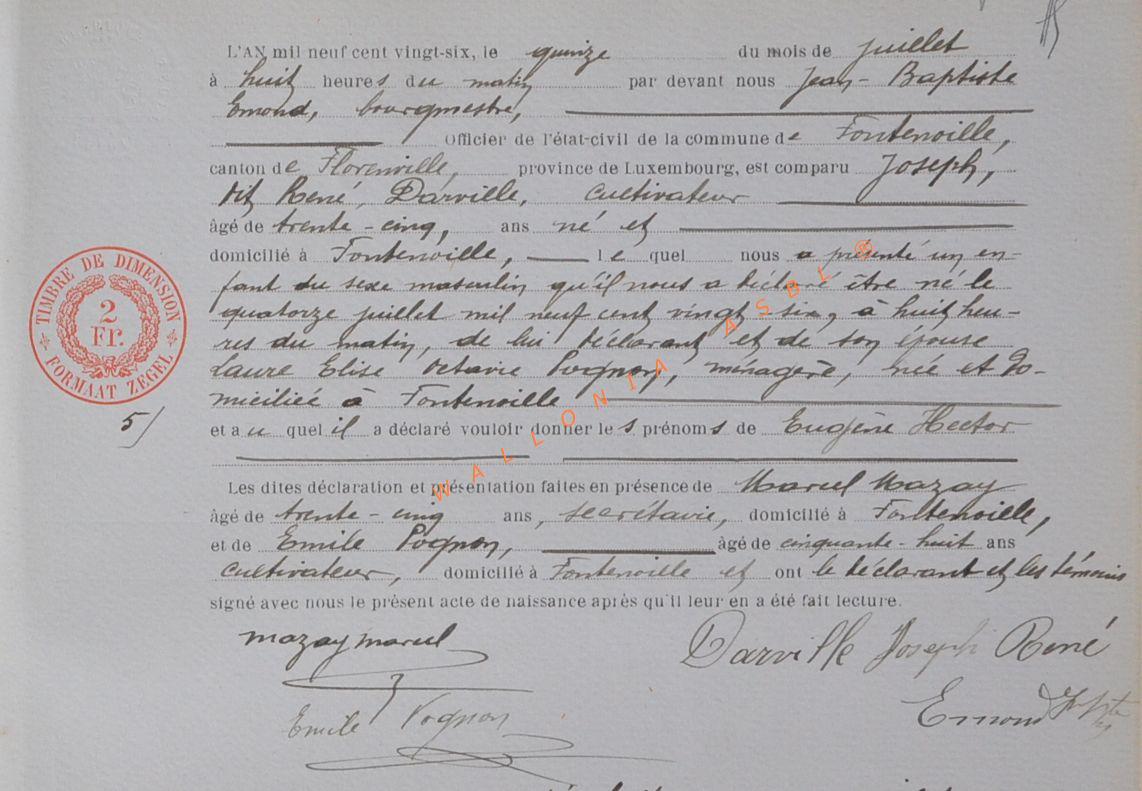 L'AN mil neuf cent vingt-six, le quinze du mois de juillet
à huit heures du matin par devant nous Jean-Baptiste
Emond, bourgmestre,
Officier de l'état-civil de la commune de Fontenoille,
canton de Florenville, province de Luxembourg, est comparu Joseph,
dit René, Darville, cultivateur
âgé de trente-cinq, ans né et
domicilié à Fontenoille, le quel nous a présenté un en-
fant du sexe masculin qu'il nous a déclaré être né le
quatorze juillet mil neuf cent vingt six, à huit heu-
res du matin, de lui déclarant et de son épouse
Laure Elise Octavie Pognon, ménagère, née et do-
miciliée à Fontenoille
et au quel il a déclaré vouloir donner les prénoms de Eugène Hector
Les dites déclaration et présentation faites en présence de Marcel Mazay
âgé de trente-cinq ans, secrétaire, domicilié à Fontenoille,
et de Emile Pognon, âgé de cinquante-huit ans
cultivateur, domicilié à Fontenoille et ont le déclarant et les témoins
signé avec nous le présent acte de naissance après qu'il leur en a été fait lecture.
Mazay Marcel
Darville Joseph René
Emile Pognon
Emond
TIMBRE DE DIMENSION
2
Fr.
FORMAAT ZEGEL
5/
WALLONIA ASBL ®